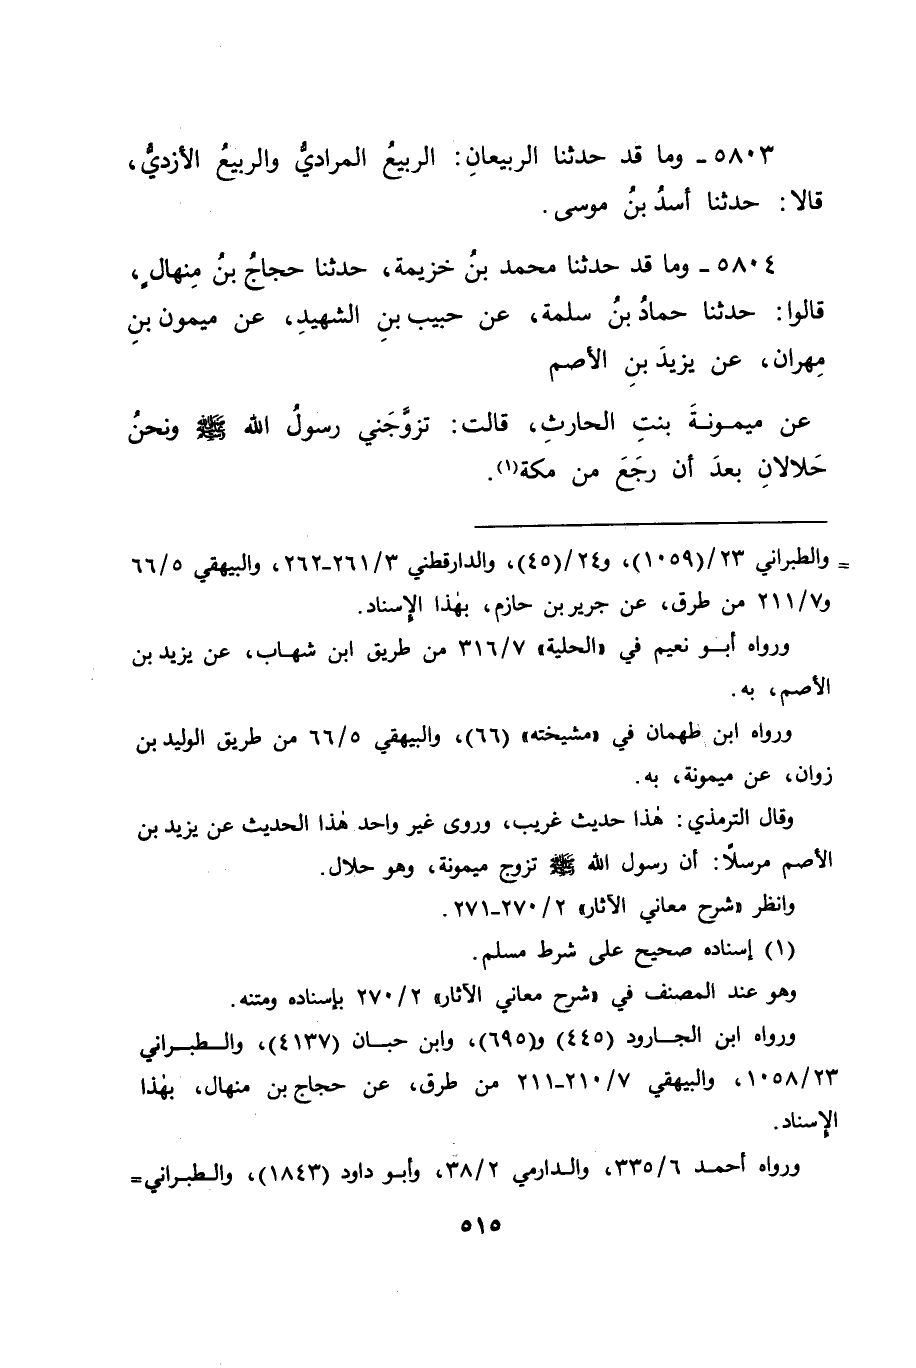 ٥٨٠٣ ـ وما قد حدثنا الربيعانِ: الربيعُ المراديُّ والربيعُ الأزديُّ،
قالا: حدثنا أسدُ بنُ موسى.
٥٨٠٤ ـ وما قد حدثنا محمد بنُ خزيمة، حدثنا حجاجُ بنُ مِنهالٍ،
قالوا: حدثنا حمادُ بنُ سلمة، عن حبيب بنِ الشهيدِ، عن ميمون بنِ
مِهران، عن يزيدَ بنِ الأصم
عن ميمونةَ بنتِ الحارثِ، قالت: تزوَّجَني رسولُ الله ﷺ ونحنُ
حَلالانِ بعدَ أن رجَعَ من مكة(١).
= والطبراني ٢٣/(١٠٥٩)، و٢٤/(٤٥)، والدارقطني ٢٦١/٣ـ٢٦٢، والبيهقي ٦٦/٥
و٢١١/٧ من طرق، عن جرير بن حازم، بهٰذا الإِسناد.
ورواه أبو نعيم في «الحلية» ٣١٦/٧ من طريق ابن شهاب، عن يزيد بن
الأصم، به.
ورواه ابن طهمان في «مشيخته» (٦٦)، والبيهقي ٦٦/٥ من طريق الوليد بن
زوان، عن ميمونة، به.
وقال الترمذي: هٰذا حديث غريب، وروى غير واحد هٰذا الحديث عن يزيد بن
الأصم مرسلاً: أن رسول الله ﷺ تزوج ميمونة، وهو حلال.
وانظر «شرح معاني الآثار» ٢٧٠/٢ـ٢٧١.
(١) إسناده صحيح على شرط مسلم.
وهو عند المصنف في «شرح معاني الآثار» ٢٧٠/٢ بإسناده ومتنه.
ورواه ابن الجارود (٤٤٥) و(٦٩٥)، وابن حبان (٤١٣٧)، والطبراني
١٠٥٨/٢٣، والبيهقي ٢١٠/٧ـ٢١١ من طرق، عن حجاج بن منهال، بهٰذا
الإِسناد.
ورواه أحمد ٣٣٥/٦، والدارمي ٣٨/٢، وأبو داود (١٨٤٣)، والطبراني=
٥١٥